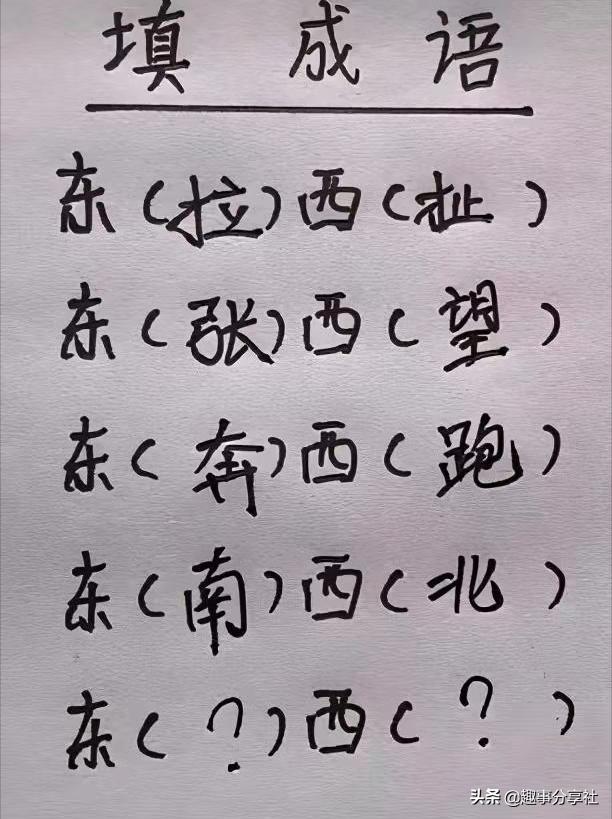 填成语
东（拉）西（扯）
东（张）西（望）
东（奔）西（跑）
东（南）西（北）
东（？）西（？）
头条 @趣事分享社